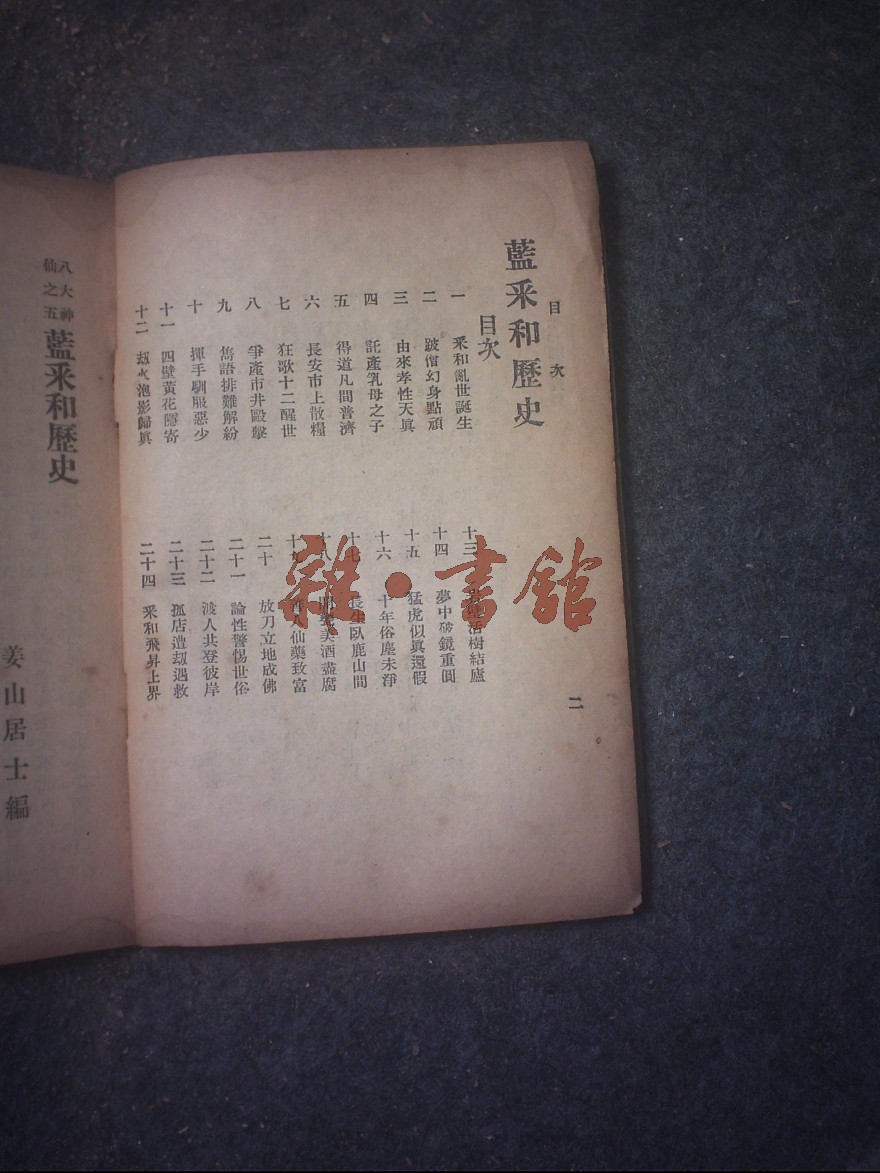 目次
藍采和歷史
目次
一 采和亂世誕生
二 跛僧幻身點頑
三 由來孝性天眞
四 託產乳母之子
五 得道凡間普濟
六 長安市上散糧
七 狂歌十二醒世
八 爭產市井毆擊
九 雋語排難解紛
十 揮手馴服惡少
十一 四壁黃花隱寄
十二 刼火泡影歸眞
十三 活樹結廬
十四 夢中破鏡重圓
十五 猛虎似眞還假
十六 十年俗塵未淨
十七 長生臥鹿山間
十八 美酒盡腐
十九 人仙藥致富
二十 放刀立地成佛
二十一 論性警惕世俗
二十二 渡人共登彼岸
二十三 孤店遭刼遇救
二十四 采和飛昇上界
二
八大神仙之五
藍采和歷史
姜山居士編
雜·書館